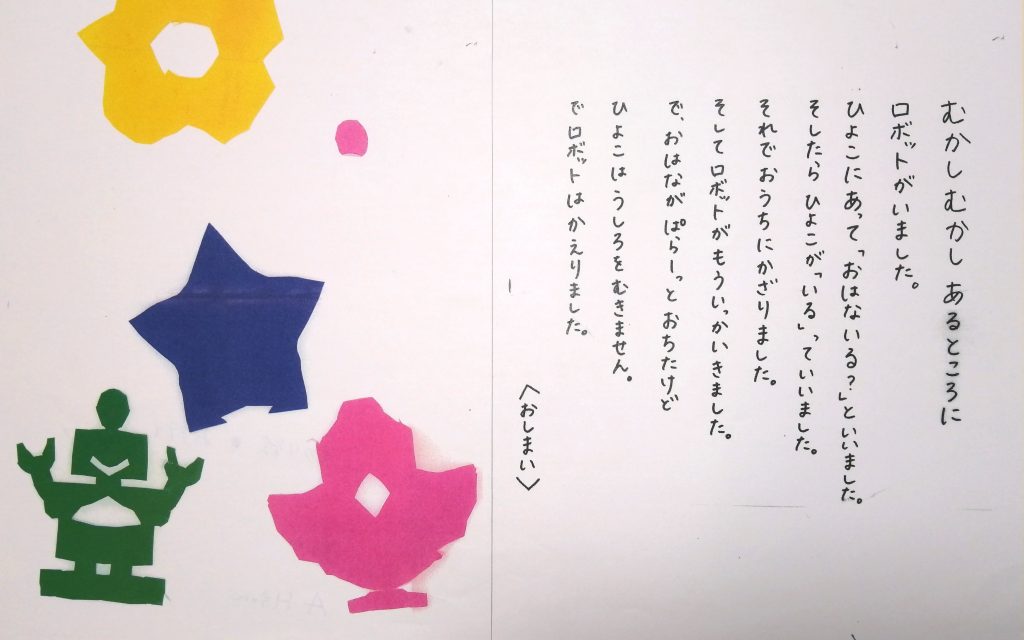 むかしむかし あるところに
ロボットがいました。
ひよこにあって「おはないる？」といいました。
そしたら ひよこが「いる」っていいました。
それでおうちにかざりました。
そしてロボットがもういっかいきました。
で、おはなが ぱらーっと おちたけど
ひよこはうしろをむきません。
でロボットはかえりました。
〈おしまい〉